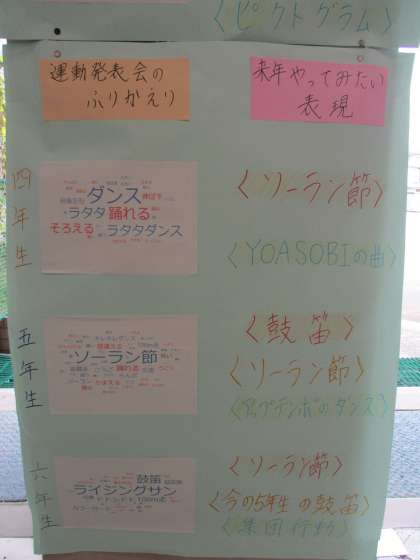 〈ピクトグラム〉
運動発表会の
ふりかえり
来年やってみたい
表現
四年生
ダンス
ラタタ 踊れる
そろえる ラタタダンス
〈ソーラン節〉
〈YOASOBIの曲〉
五年生
ソーラン節
踊れる
〈鼓笛〉
〈ソーラン節〉
〈アップテンポのダンス〉
六年生
鼓笛
ライジングサン
100m走
〈ソーラン節〉
〈今の5年生の鼓笛〉
〈集団行動〉